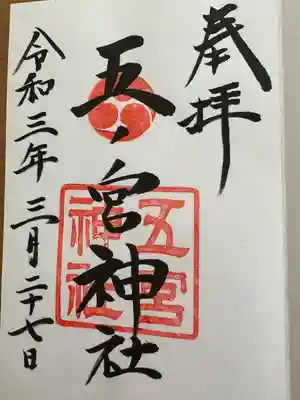 奉拝
五ノ宮神社
五宮
神社
令和三年三月二十七日